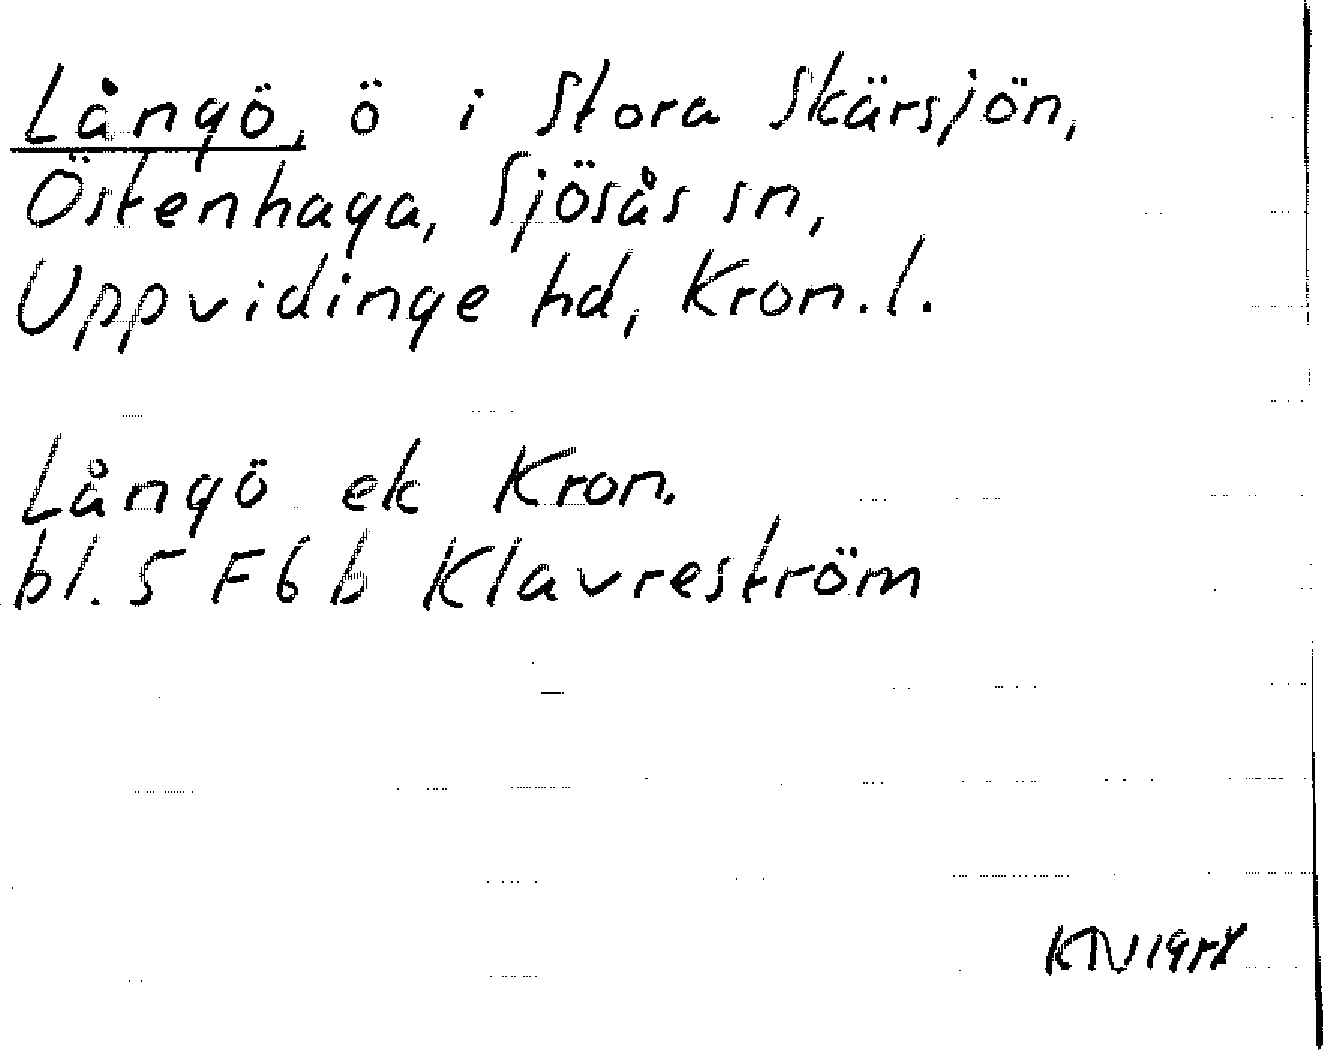 Långö, ö i Stora Skärsjön,
Östenhaga, Sjösås sn,
Uppvidinge hd, Kron. l.
Långö ek Kron.
bl. 5 F 6 b Klavreström